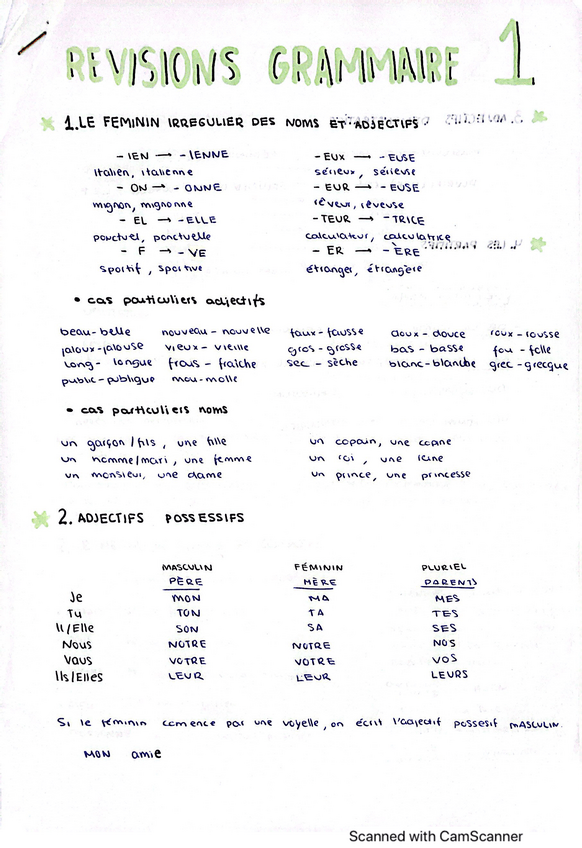 REVISIONS GRAMMAIRE 1
1. LE FEMININ IRREGULIER DES NOMS ET ADJECTIFS.
- IEN → - IENNE
Italien, italienne
- ON → - ONNE
mignon, mignonne
- EL → - ELLE
ponctuel, ponctuelle
- F → - VE
sportif, sportive
- EUX → - EUSE
sérieux, sérieuse
- EUR → - EUSE
rêveur, rêveuse
- TEUR → - TRICE
calculateur, calculatrice
- ER → - ÈRE
étranger, étrangère
• cas particuliers adjectifs
beau-belle nouveau-nouvelle faux-fausse doux-douce roux-rousse
jaloux-jalouse vieux-vieille gros-grosse bas-basse fou-folle
long-longue frais-fraîche sec-sèche blanc-blanche grec-grecque
public-publique mou-molle
• cas particuliers noms
un garçon/fils, une fille un copain, une copine
un homme/mari, une femme un roi, une reine
un monsieur, une dame un prince, une princesse
2. ADJECTIFS POSSESSIFS
MASCULIN FÉMININ PLURIEL
PÈRE MÈRE PARENTS
Je MON MA MES
Tu TON TA TES
Il/Elle SON SA SES
Nous NOTRE NOTRE NOS
Vous VOTRE VOTRE VOS
Ils/Elles LEUR LEUR LEURS
Si le féminin comence par une voyelle, on écrit l'adjectif possesif MASCULIN.
MON amie
Scanned with CamScanner